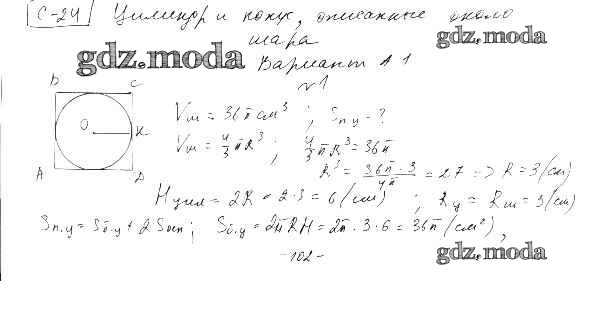 С-24 Цилиндр и конус, описанные около
шара
gdz.moda
gdz.moda
Вариант А1
№1
B C
O K
A D
Vш = 36π см³ ; Sп.ц - ?
Vш = 4/3 πR³ ; 4/3 πR³ = 36π
R³ = 36π · 3 / 4π = 27 => R = 3 (см)
Hцил = 2R = 2·3 = 6 (см) ; Rц = Rш = 3 (см)
Sп.ц = Sб.ц + 2Sосн ; Sб.ц = 2πRH = 2π·3·6 = 36π (см²),
-102-
gdz.moda